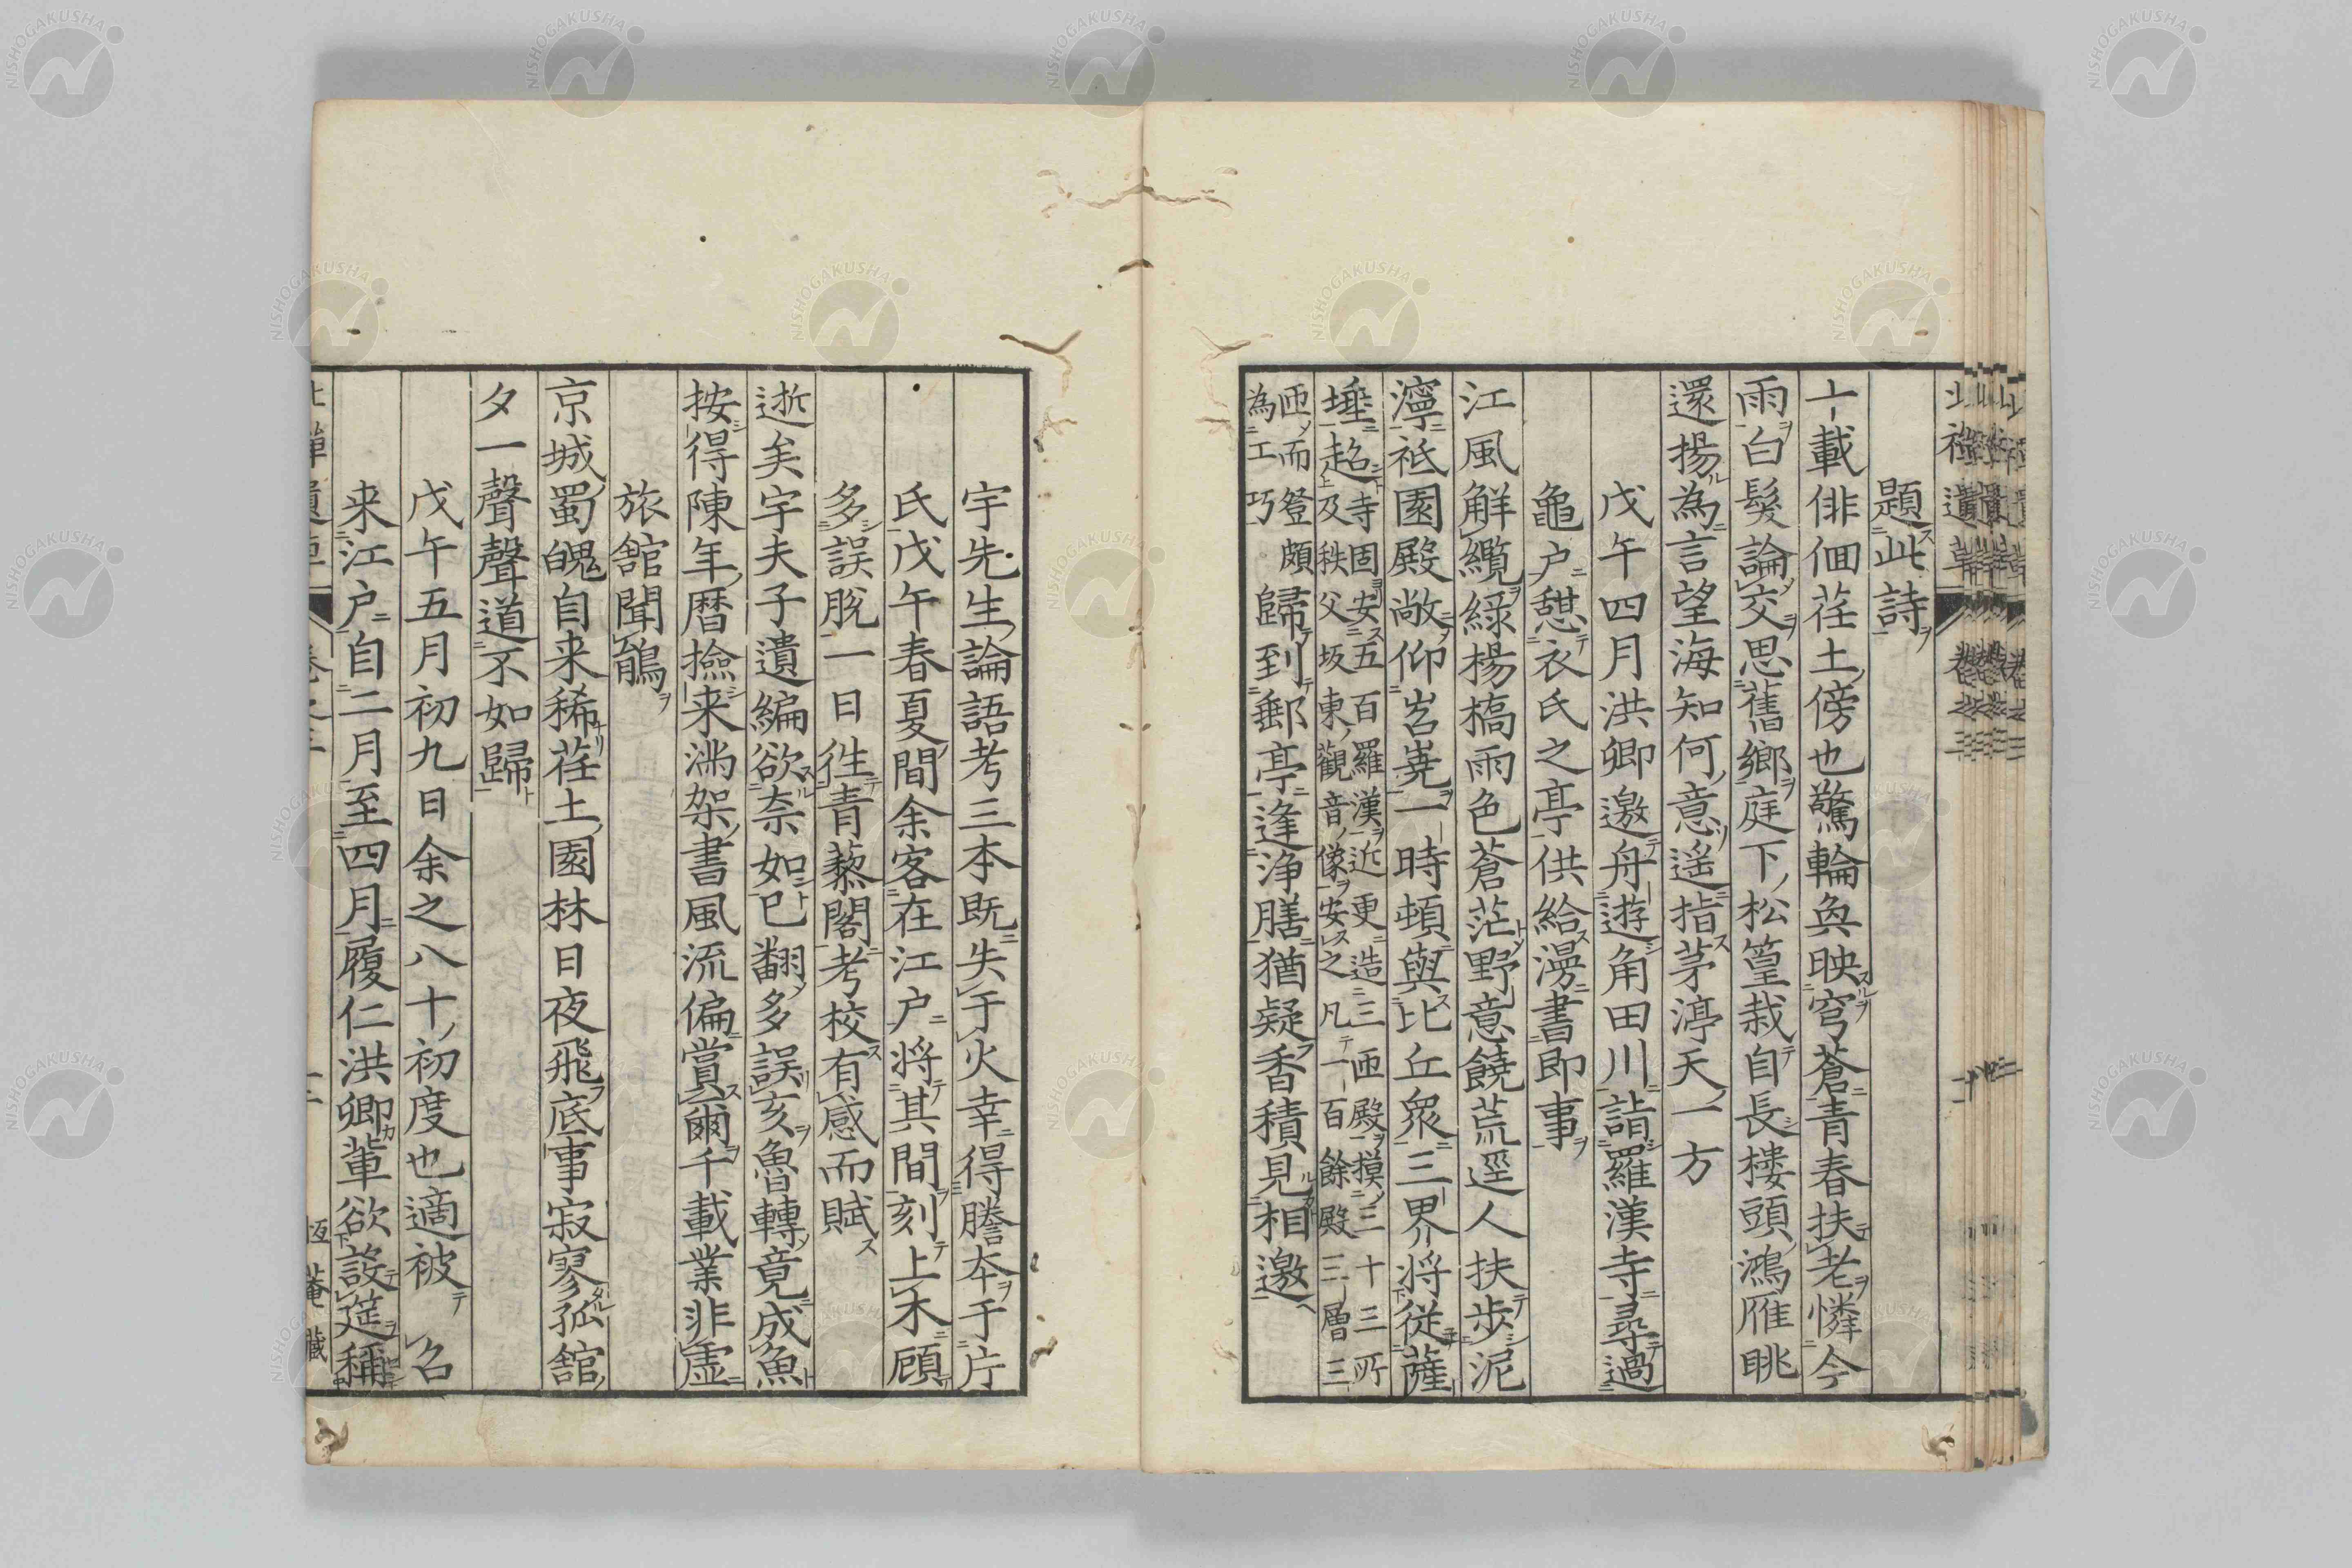 題此詩
十載俳佪荏土傍也驚輪奐映穹蒼青春扶老憐今
雨白髮論交思舊鄉庭下松篁栽自長樓頭鴻雁眺
還揚為言望海知何意遙指茅渟天一方
戊午四月洪卿邀舟遊角田川詣羅漢寺尋過
龜戶憇衣氏之亭供給漫書即事
江風解纜綠楊橋雨色蒼茫野意饒荒逕人扶步泥
濘祇園殿敞仰岧嶤一時頓與比丘眾三界將從薩
埵超
寺固安五百羅漢近更造三匝殿摸三十三所
及秩父坂東觀音像安之凡一百餘殿三層三
匝而登頗
為工巧
歸到郵亭逢淨膳猶疑香積見相邀
宇先生論語考三本既失于火幸得謄本于片
氏戊午春夏間余客在江戶將其間刻上木顧
多誤脫一日往青藜閣考校有感而賦
逝矣宇夫子遺編欲奈如已翻多誤亥魯轉竟成魚
按得陳年曆撿来滿架書風流偏賞爾千載業非虛
旅舘聞鵑
京城蜀魄自来稀荏土園林日夜飛底事寂寥孤舘
夕一聲聲道不如歸
戊午五月初九日余之八十初度也適被 召
来江戶自二月至四月履仁洪卿輩欲設筵稱
恆菴藏
NISHOGAKUSHA